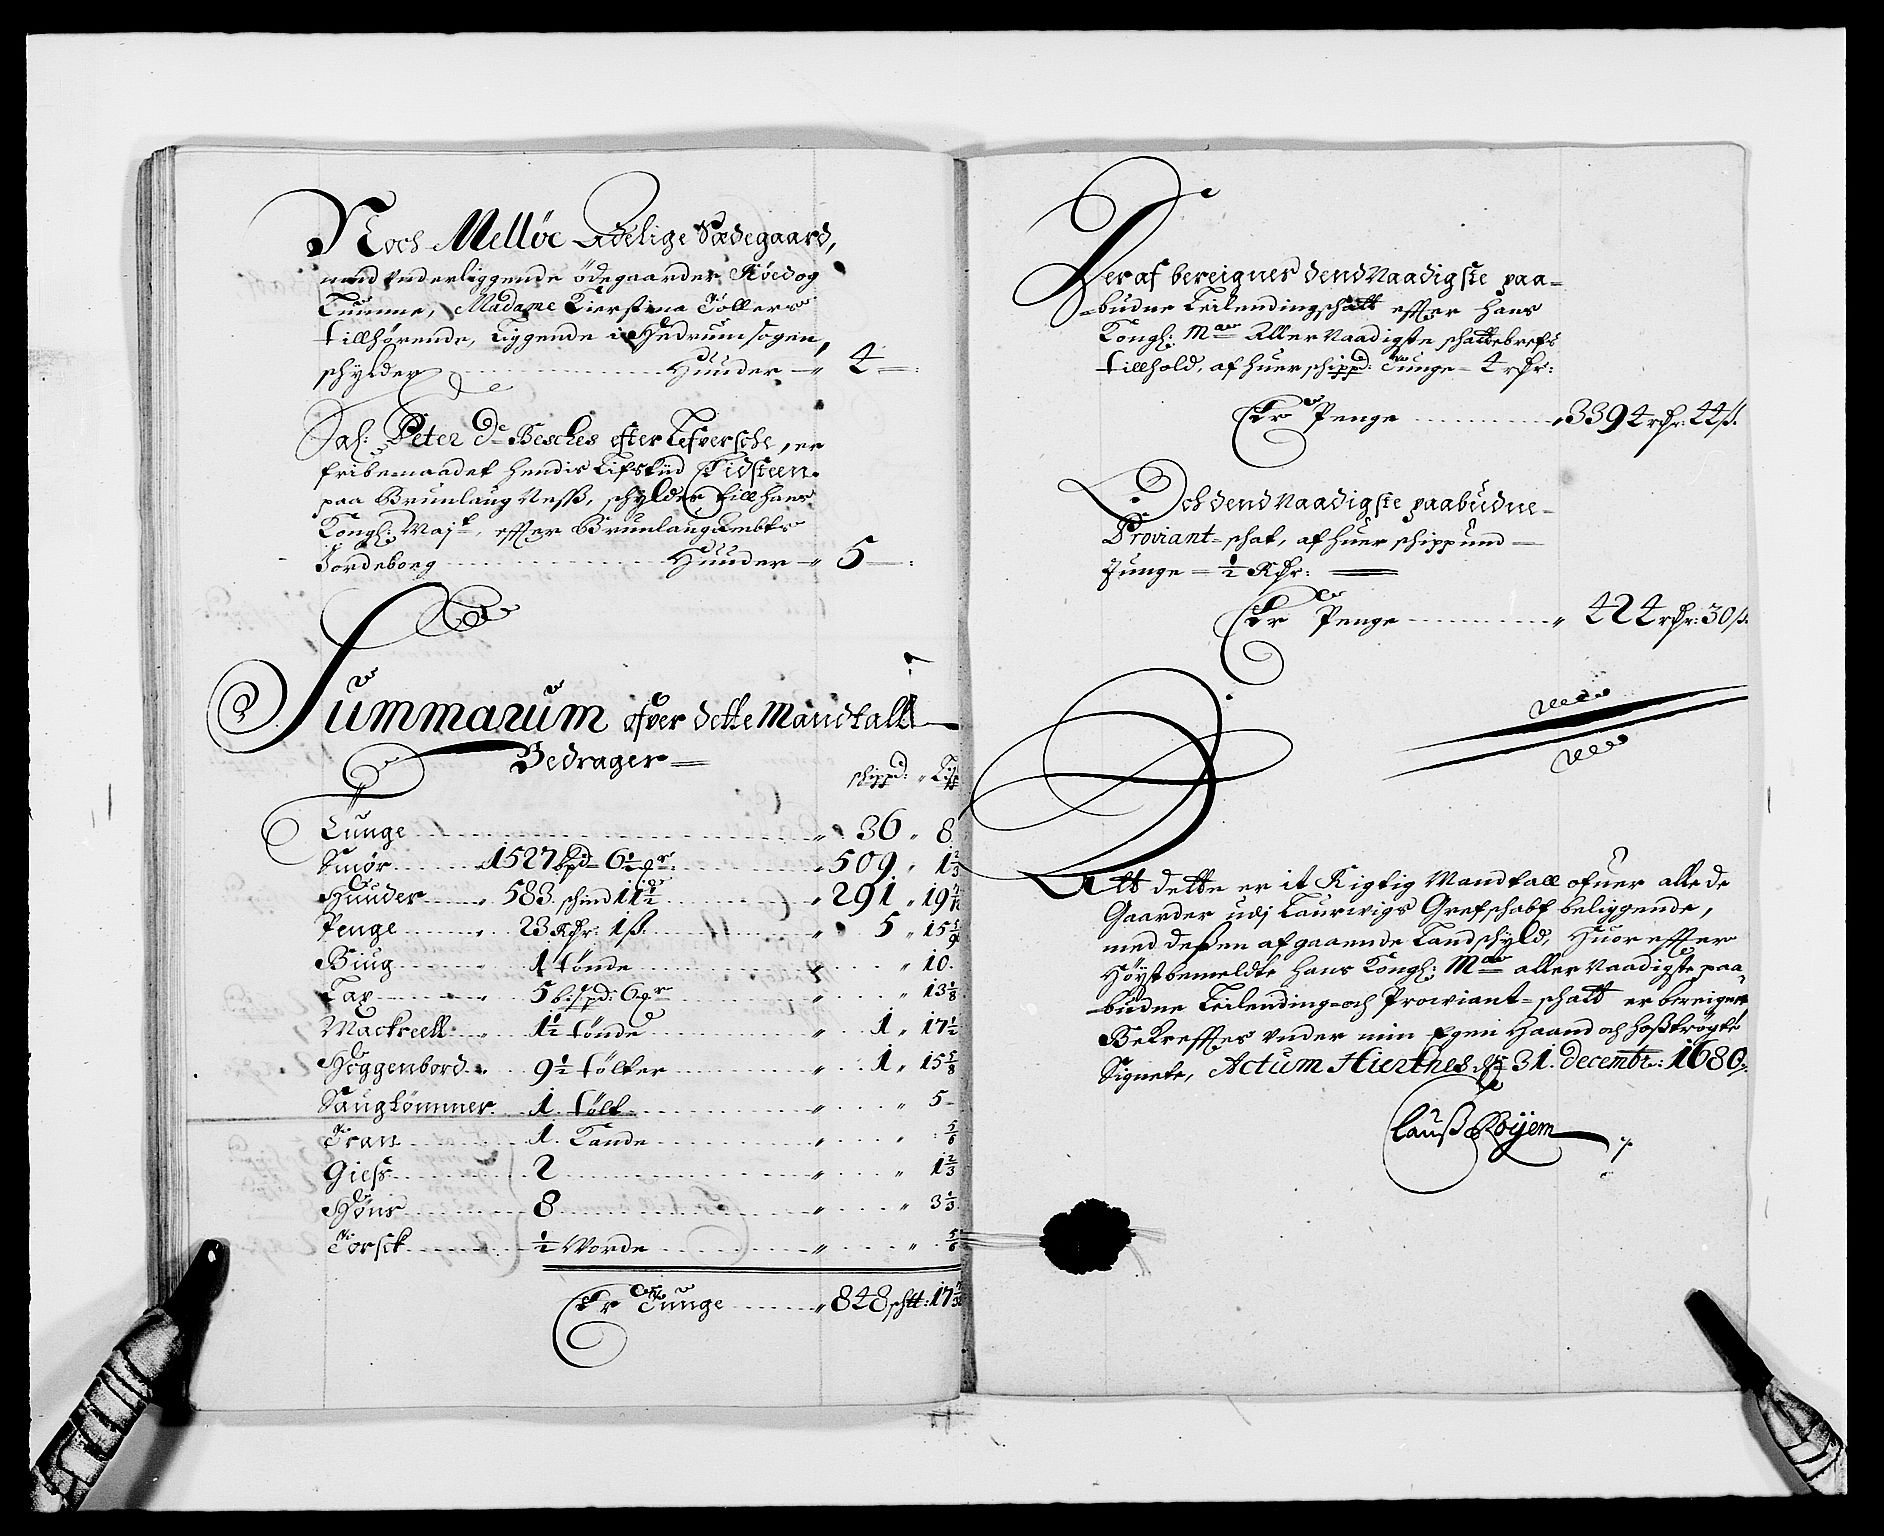 Noch Melløe Adelige Sædegaard,
med underliggende ödegaarder Röed og
Tumme, Madame Kierstina Töllers
tillhørende, liggende i Hedrum sogen,
schylder Huuder 4
Sal: Peter De Besches efterlefversche, er
fribenaadet hendis Lifstiid Tidsteen
paa Brunlaug Ness, schylder till hans
Kongl: Majt. effter Brunlaugambts
Jordebog Huuder 5
Summarum ofver dette Mandtall
Bedrager
schippd: Lispd
Tunge 36 8
Smör 1527 bpd 6½ mr: 509 1⅔
Huuder 583 schind 11½ 291 19
Penge 23 Rdr: 1ß. 5 15
Biug 1 tönde 10.
Tax 5 bispd: 6 mr 13⅛
Mackreell 1½ tönde 1 17½
Heggenbord 9½ tölter 1 15⅝
Saugtömmer 1. tölt 5
Tran 1. Kande ⅚
Giess 2 1⅔
Höns 8 3⅓
Torsck ½ Vorde ⅚
Er Tunge 848 schtt: 17
Heraf bereignes dend Naadigste paa-
budne Leilendingschatt effter hans
Kongl: Mas Aller Naadigste schattebrefs
tillhold, af huer schippd: Tunge 4 rdr:
Er Penge 3394 rdr: 44ß.
Och dend Naadigste paabudne
Proviant-schat, af huer schippund
Tunge ½ Rdr:
Er Penge 424 rdr: 30ß.
Att dette er it Rigtig Mandtall ofuer alle de
Gaarder udj Laurwigs Grefschabf beliggende,
med dessen afgaaende Landschyld, Huor effter
Höystbemeldte hans Kongl: Mas aller Naadigste paa-
budne Leilending- och Proviant-schatt er bereignet
Bekrefftes under min Egen Haand och hoströgte
Signete, Actum Hiertnes d. 31. decembr: 1680.
Clauß Röyem